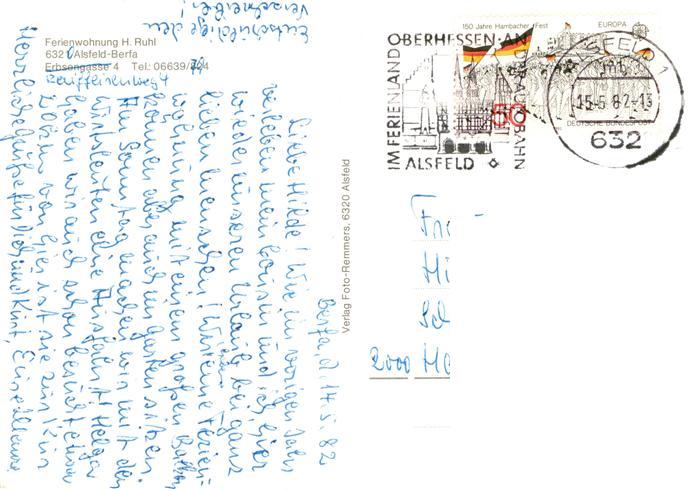 Ferienwohnung H. Ruhl
632 Alsfeld-Berfa
Erbsengasse 4 Tel.: 06639/
Raiffeisenweg 4
Entschuldige den
Verschreiber!
Berfa, d. 14.5.82
Liebe Hilde! Wie im vorigen Jahr
verleben mein Cousin und ich hier
wieder unseren Urlaub bei ganz
lieben Menschen! Wir haben eine Ferien-
wohnung mit einem großen Balkon
können aber auch im Garten sitzen
Am Sonntag machen wir mit den
Wirtsleuten eine Ausfahrt! Helga
haben wir auch schon besucht
von hier ist sie zum
Herzliche Grüße für Dich und Kurt, Eure
Verlag Foto-Remmers, 6320 Alsfeld
IM FERIENLAND
OBERHESSEN · AN
DER AUTOBAHN
ALSFELD
150 Jahre Hambacher Fest
EUROPA
50
DEUTSCHE BUNDESPOST
1
mb
15.5.82-13
632
Fr
Hi
Sch
2000 H